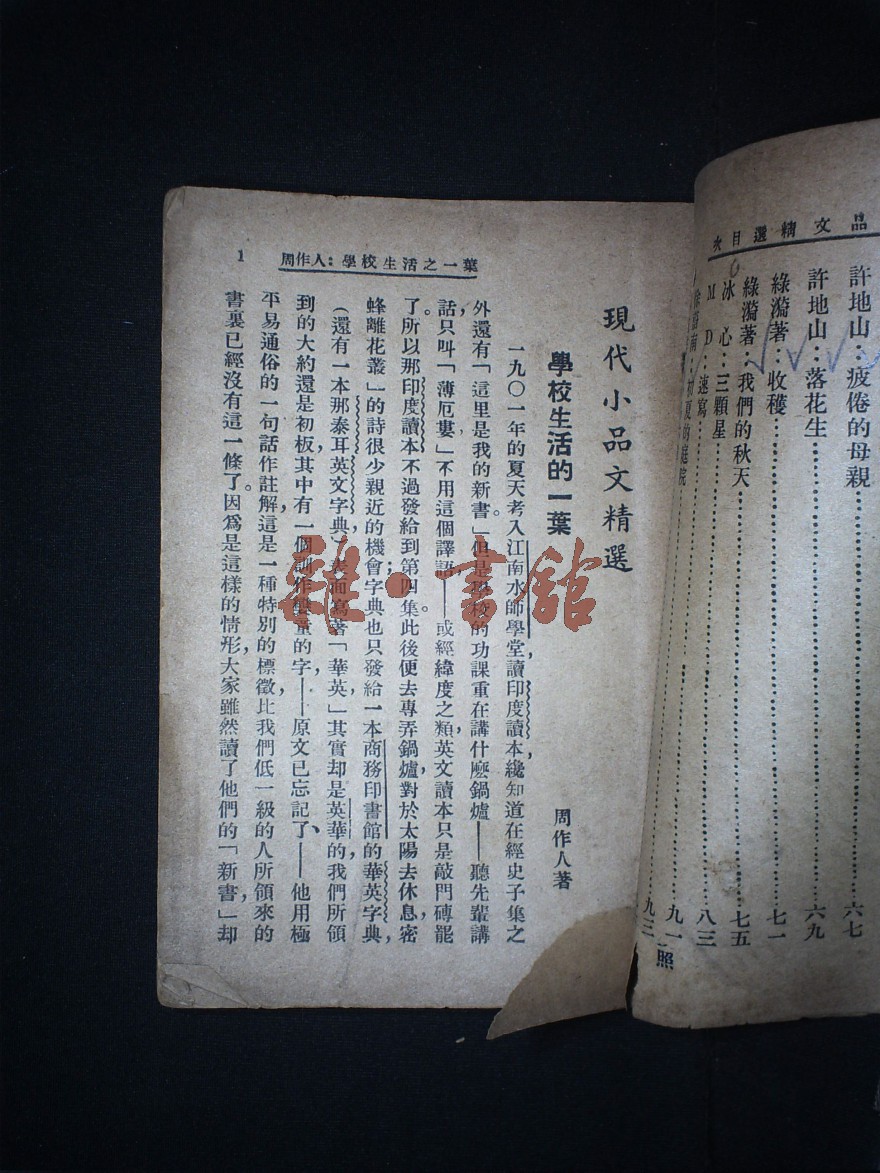 品文精選目次
許地山：疲倦的母親……六七
許地山：落花生……六九
綠漪著：收穫……七一
綠漪著：我們的秋天……七五
冰心：三顆星……八三
M D：速寫……九一
初夏的庭院……九三
照
周作人：學校生活之一葉
1
現代小品文精選
學校生活的一葉
周作人著
一九〇一年的夏天考入江南水師學堂，讀印度讀本，纔知道在經史子集之
外還有「這里是我的新書」。但是學校的功課重在講什麽鍋爐——聽先輩講
話，只叫「薄厄婁」不用這個譯語——或經緯度之類，英文讀本只是敲門磚罷
了。所以那印度讀本不過發給到第四集。此後便去專弄鍋爐，對於太陽去休息，密
蜂離花叢」的詩很少親近的機會；字典也只發給一本商務印書館的華英字典，
（還有一本那泰耳英文字典，）表面寫著「華英」其實却是英華的，我們所領
到的大約還是初板，其中有一個訓作孌童的字——原文已忘記了——他用極
平易通俗的一句話作註解，這是一種特別的標徵，比我們低一級的人所領來的
書裏已經沒有這一條了。因爲是這樣的情形，大家雖然讀了他們的「新書，」却
雜·書館